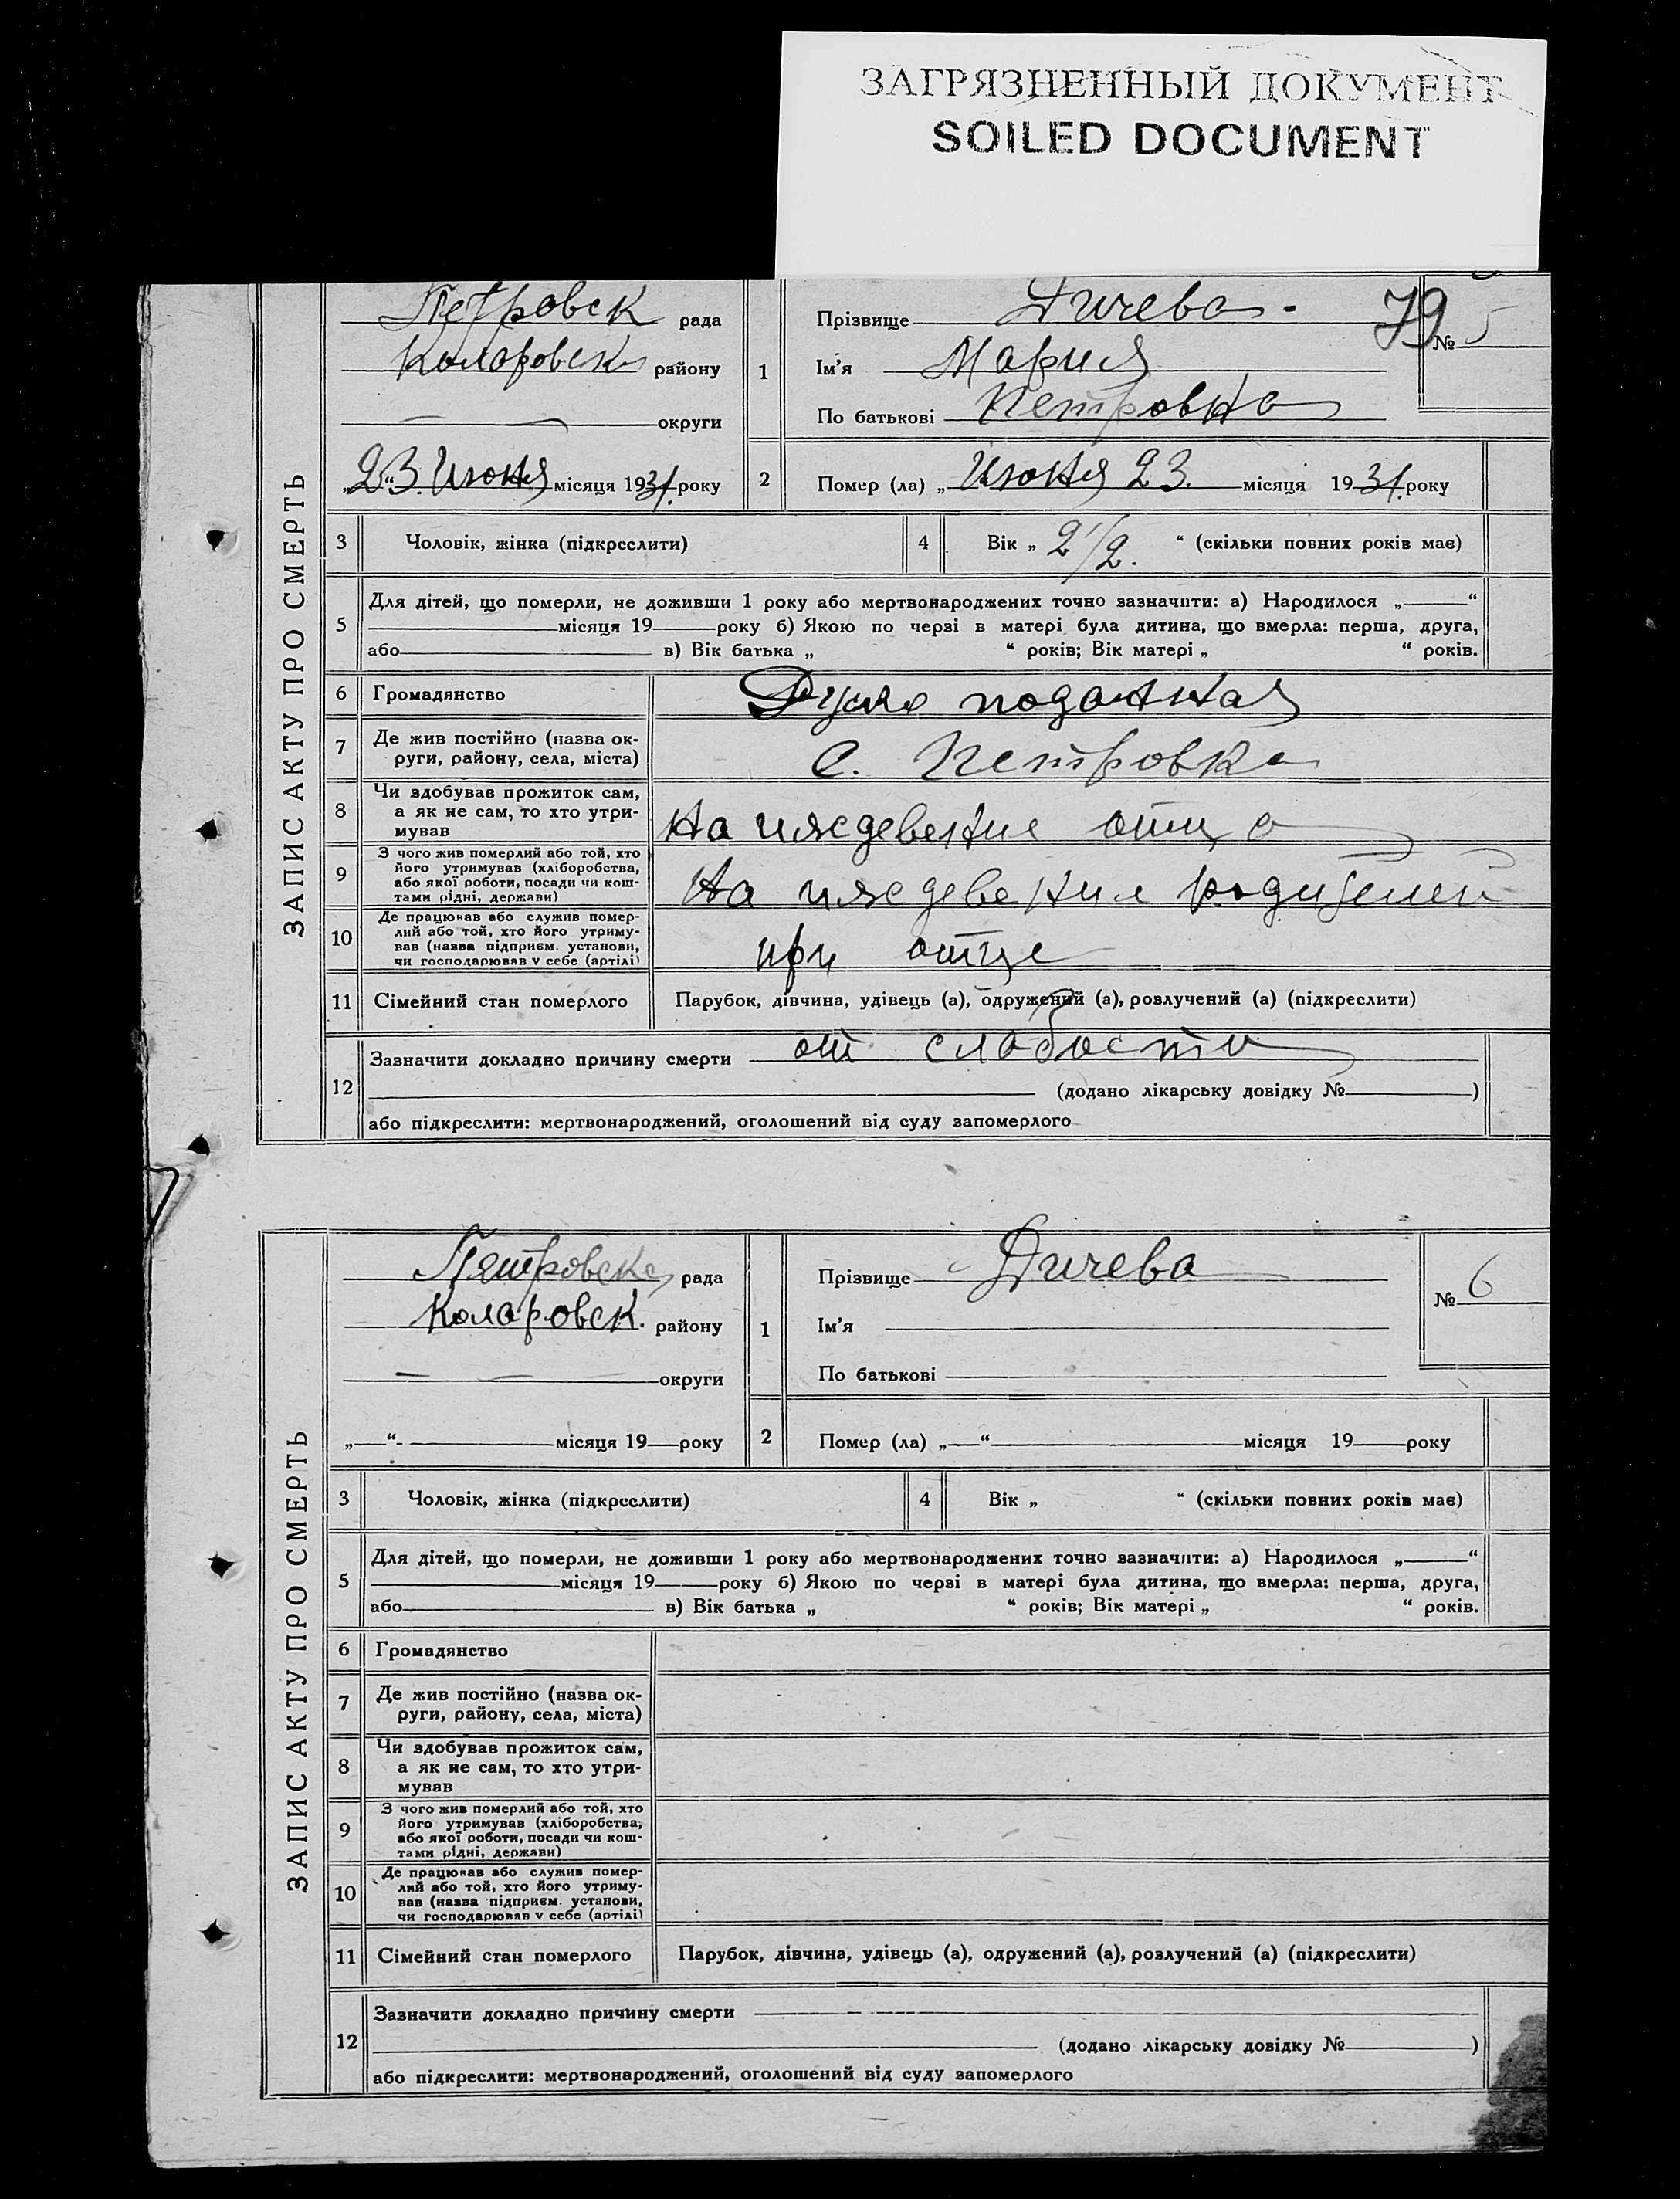 ЗАГРЯЗНЕННЫЙ ДОКУМЕНТ
SOILED DOCUMENT
ЗАПИС АКТУ ПРО СМЕРТЬ
Петровск рада
Коларовск району
округи
„23“ Июня місяця 1931. року
1
Прізвище Дичева
Ім'я Мария
По батькові Петровна
79
№ 5
2
Помер (ла) „ Июня 23. місяця 1931. року
3 Чоловік, жінка (підкреслити)
4 Вік „ 2 1/2. “ (скільки повних років має)
5
Для дітей, що померли, не доживши 1 року або мертвонароджених точно зазначити: а) Народилося „ “
місяця 19 року б) Якою по черзі в матері була дитина, що вмерла: перша, друга,
або в) Вік батька „ “ років; Вік матері „ “ років.
6 Громадянство
поданная
7 Де жив постійно (назва ок-
руги, району, села, міста)
с. Петровка
8 Чи здобував прожиток сам,
а як не сам, то хто утри-
мував
на иждевение отца
9 З чого жив померлий або той, хто
його утримував (хліборобства,
або якої роботи, посади чи кош-
тами рідні, держави)
на иждевении родителей
10 Де працював або служив помер-
лий або той, хто його утриму-
вав (назва підприєм. установи,
чи господарював у себе (артілі)
при отце
11 Сімейний стан померлого Парубок, дівчина, удівець (а), одружений (а), розлучений (а) (підкреслити)
12
Зазначити докладно причину смерти от слабости
(додано лікарську довідку № )
або підкреслити: мертвонароджений, оголошений від суду запомерлого
ЗАПИС АКТУ ПРО СМЕРТЬ
Пятровска рада
Коларовск. району
округи
„ “ місяця 19 року
1
Прізвище Дичева
Ім'я
По батькові
№ 6
2
Помер (ла) „ “ місяця 19 року
3 Чоловік, жінка (підкреслити)
4 Вік „ “ (скільки повних років має)
5
Для дітей, що померли, не доживши 1 року або мертвонароджених точно зазначити: а) Народилося „ “
місяця 19 року б) Якою по черзі в матері була дитина, що вмерла: перша, друга,
або в) Вік батька „ “ років; Вік матері „ “ років.
6 Громадянство
7 Де жив постійно (назва ок-
руги, району, села, міста)
8 Чи здобував прожиток сам,
а як не сам, то хто утри-
мував
9 З чого жив померлий або той, хто
його утримував (хліборобства,
або якої роботи, посади чи кош-
тами рідні, держави)
10 Де працював або служив помер-
лий або той, хто його утриму-
вав (назва підприєм. установи,
чи господарював у себе (артілі)
11 Сімейний стан померлого Парубок, дівчина, удівець (а), одружений (а), розлучений (а) (підкреслити)
12
Зазначити докладно причину смерти
(додано лікарську довідку № )
або підкреслити: мертвонароджений, оголошений від суду запомерлого